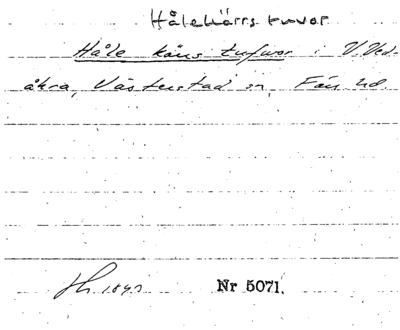 Hålekärrs tuvor
Håle kärrs tufwor i V. Ved-
åkra, Västerstad sn, Färs hd.
Nr 5071.